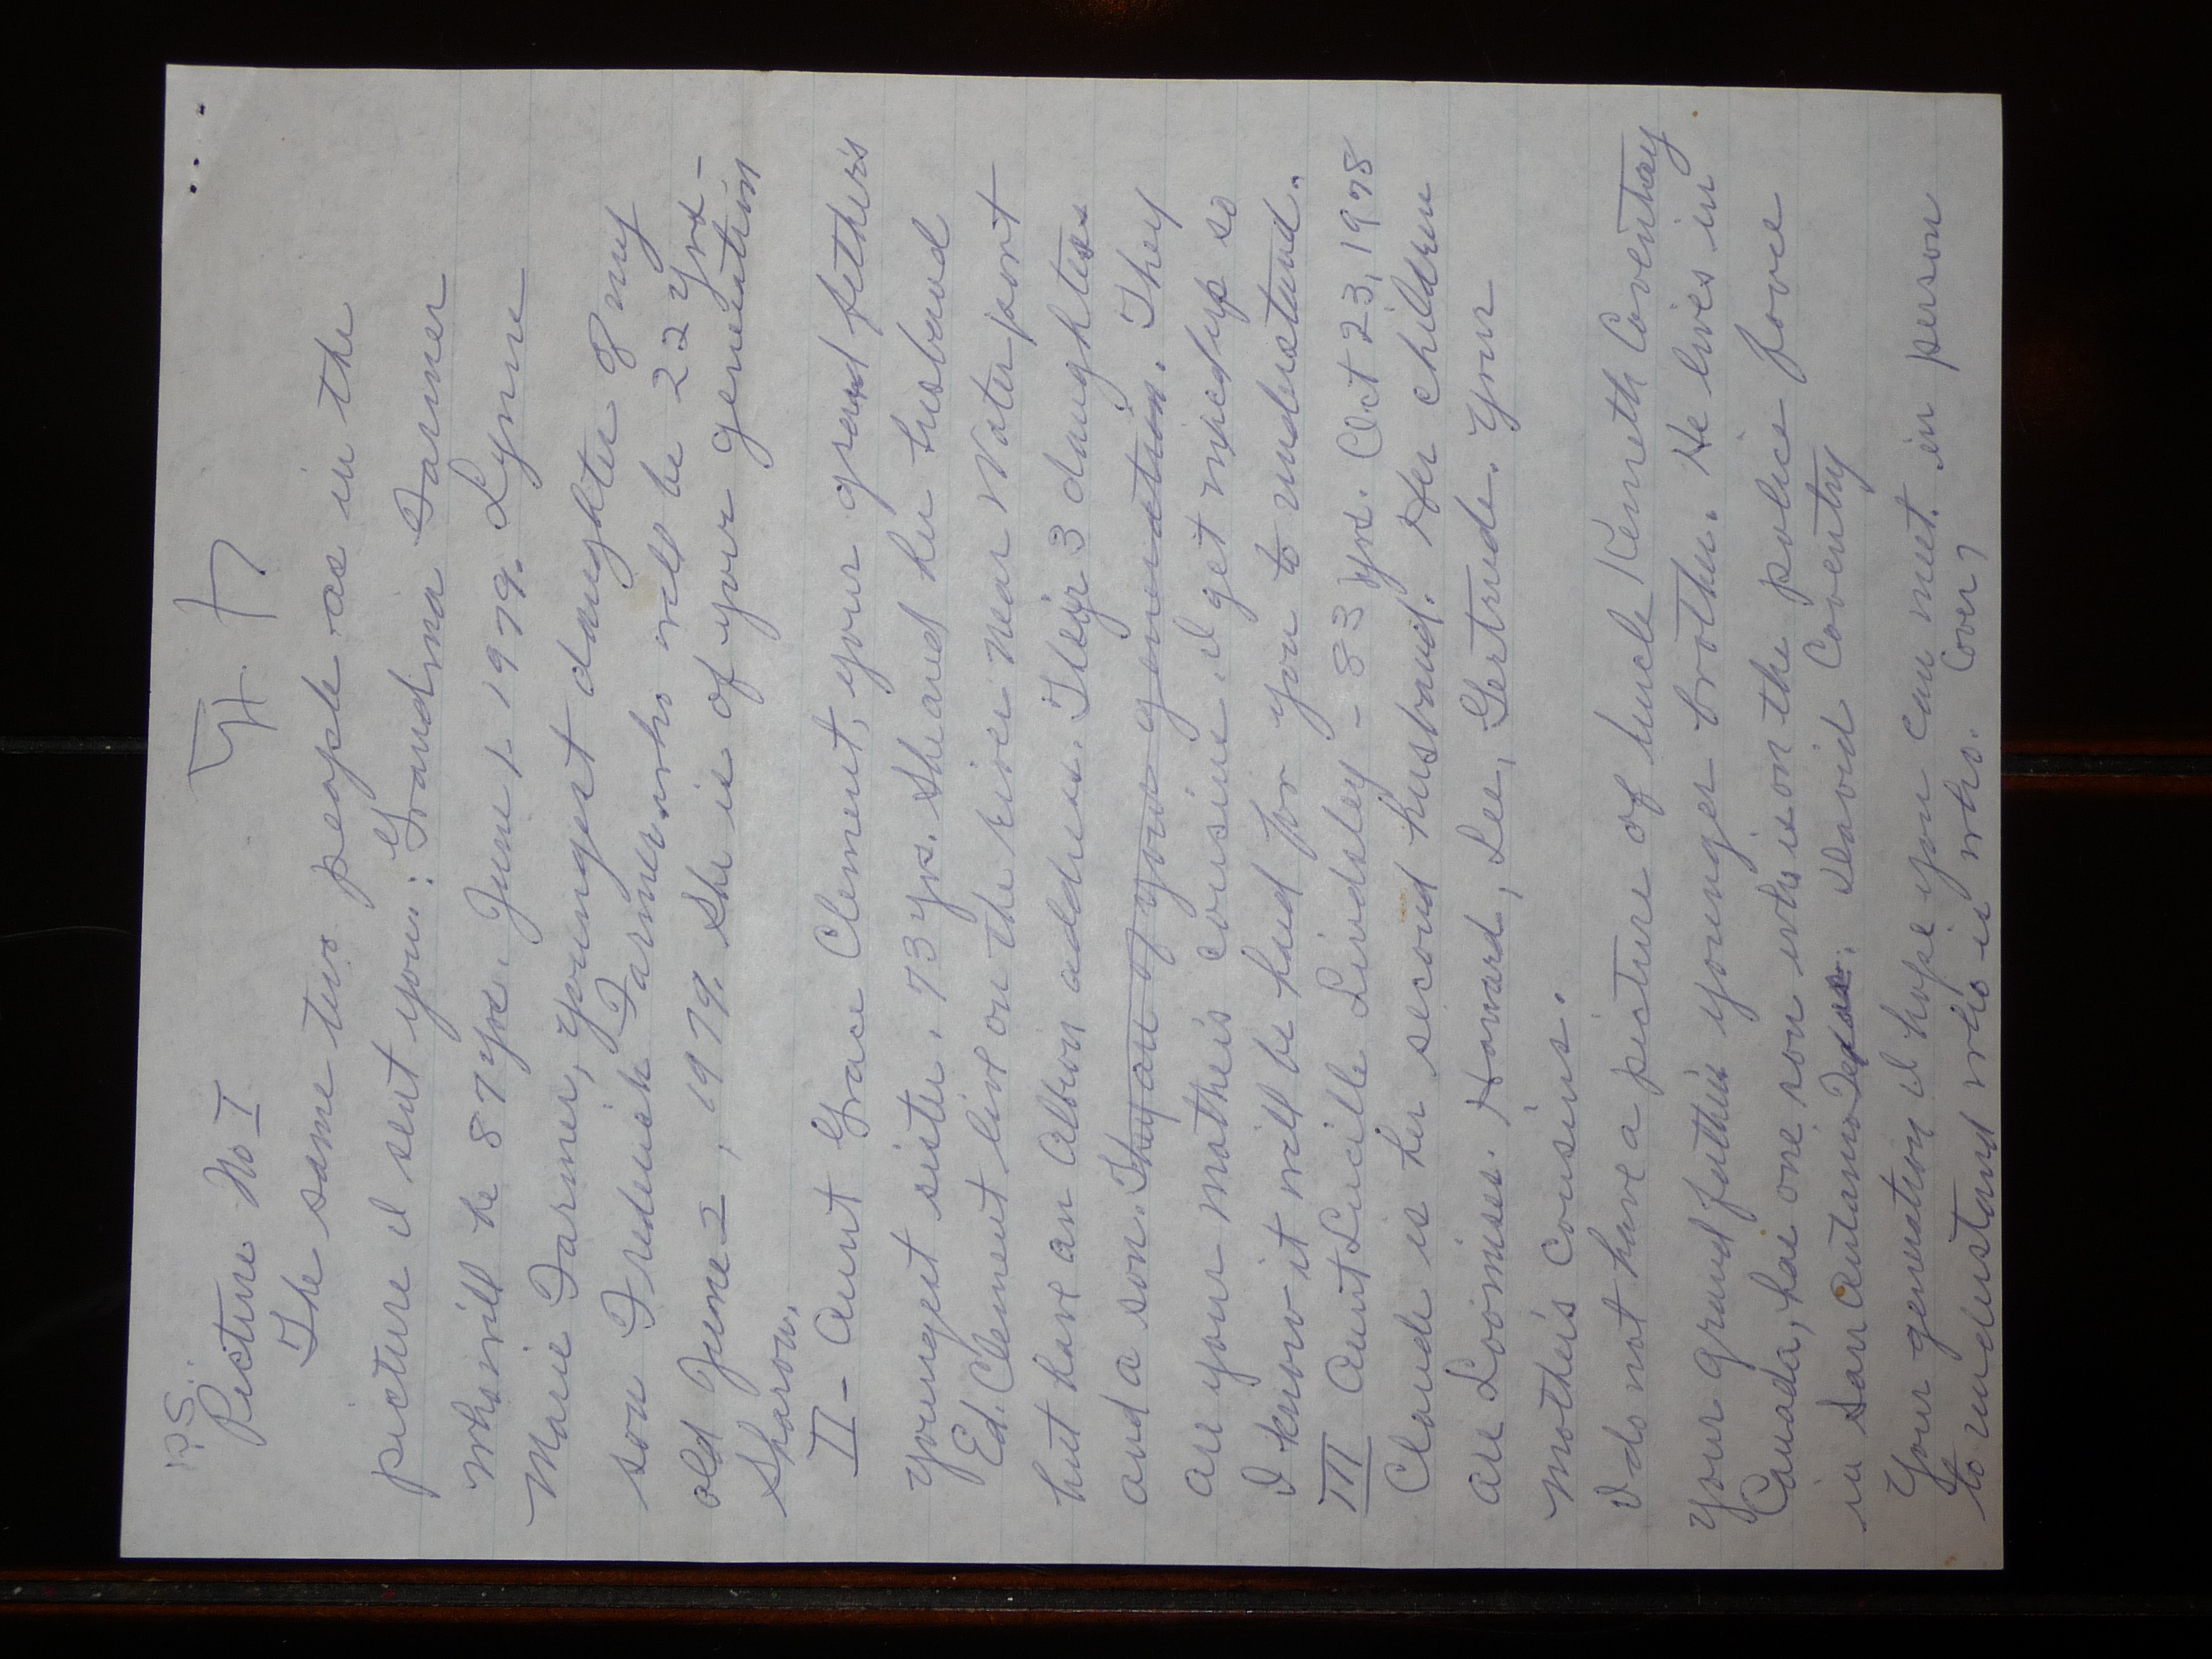 P.S.
Picture No I
The same two people as in the
picture I sent you: Grandma Farmer
who will be 87 yrs. June 1, 1979. Lynn
Marie Farmer, youngest daughter of my
son Frederick Farmer who will be 22 yrs-
old June 2, 1979. She is of your generation
Sharon.
II - Aunt Grace Clement, your grand father's
youngest sister. 73 yrs. She and her husband
Ed. Clement live on the river near Waterport
but have an Albion address. Their 3 daughters
and a son. They are of your generation. They
are your mother's cousins. I get mixed up so
I know it will be hard for you to understand.
III Aunt Lucille Lindsley - 83 yrs. Oct 23, 1978
Claude is her second husband. Her children
are Loomises. Howard, Lee, Gertrude. Your
mother's cousins.
I do not have a picture of Uncle Kenneth Coventry
your grand father's younger brother. He lives in
Canada, has one son who is on the police force
in San Antonio Texas. David Coventry
Your generation I hope you can meet in person
to understand who is who. (over)